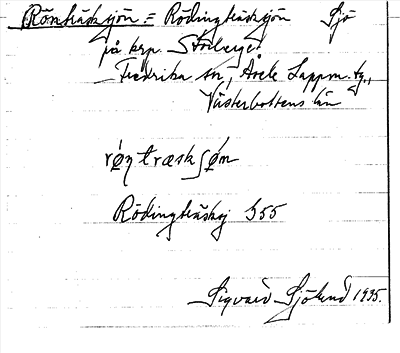 Rönträsksjön = Rödingträsksjön Sjö
på krp. Storberget
Fredrika sn, Åsele Lappm. tg.,
Västerbottens län
røŋtræskʃøn
Rödingträsksj 355
Sigvard Sjölund 1935.